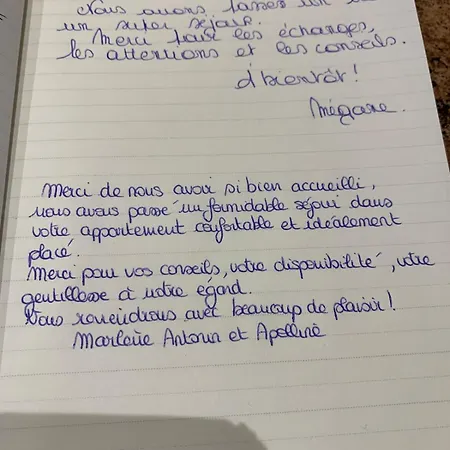 Nous avons passer un
un super séjour.
Merci pour les échanges,
les attentions et les conseils.
À bientôt!
Mégane.
Merci de nous avoir si bien accueilli,
nous avons passé un formidable séjour dans
votre appartement confortable et idéalement
placé.
Merci pour vos conseils, votre disponibilité, votre
gentillesse à notre égard.
Nous reviendrons avec beaucoup de plaisir!
Marlène Antonin et Apolline